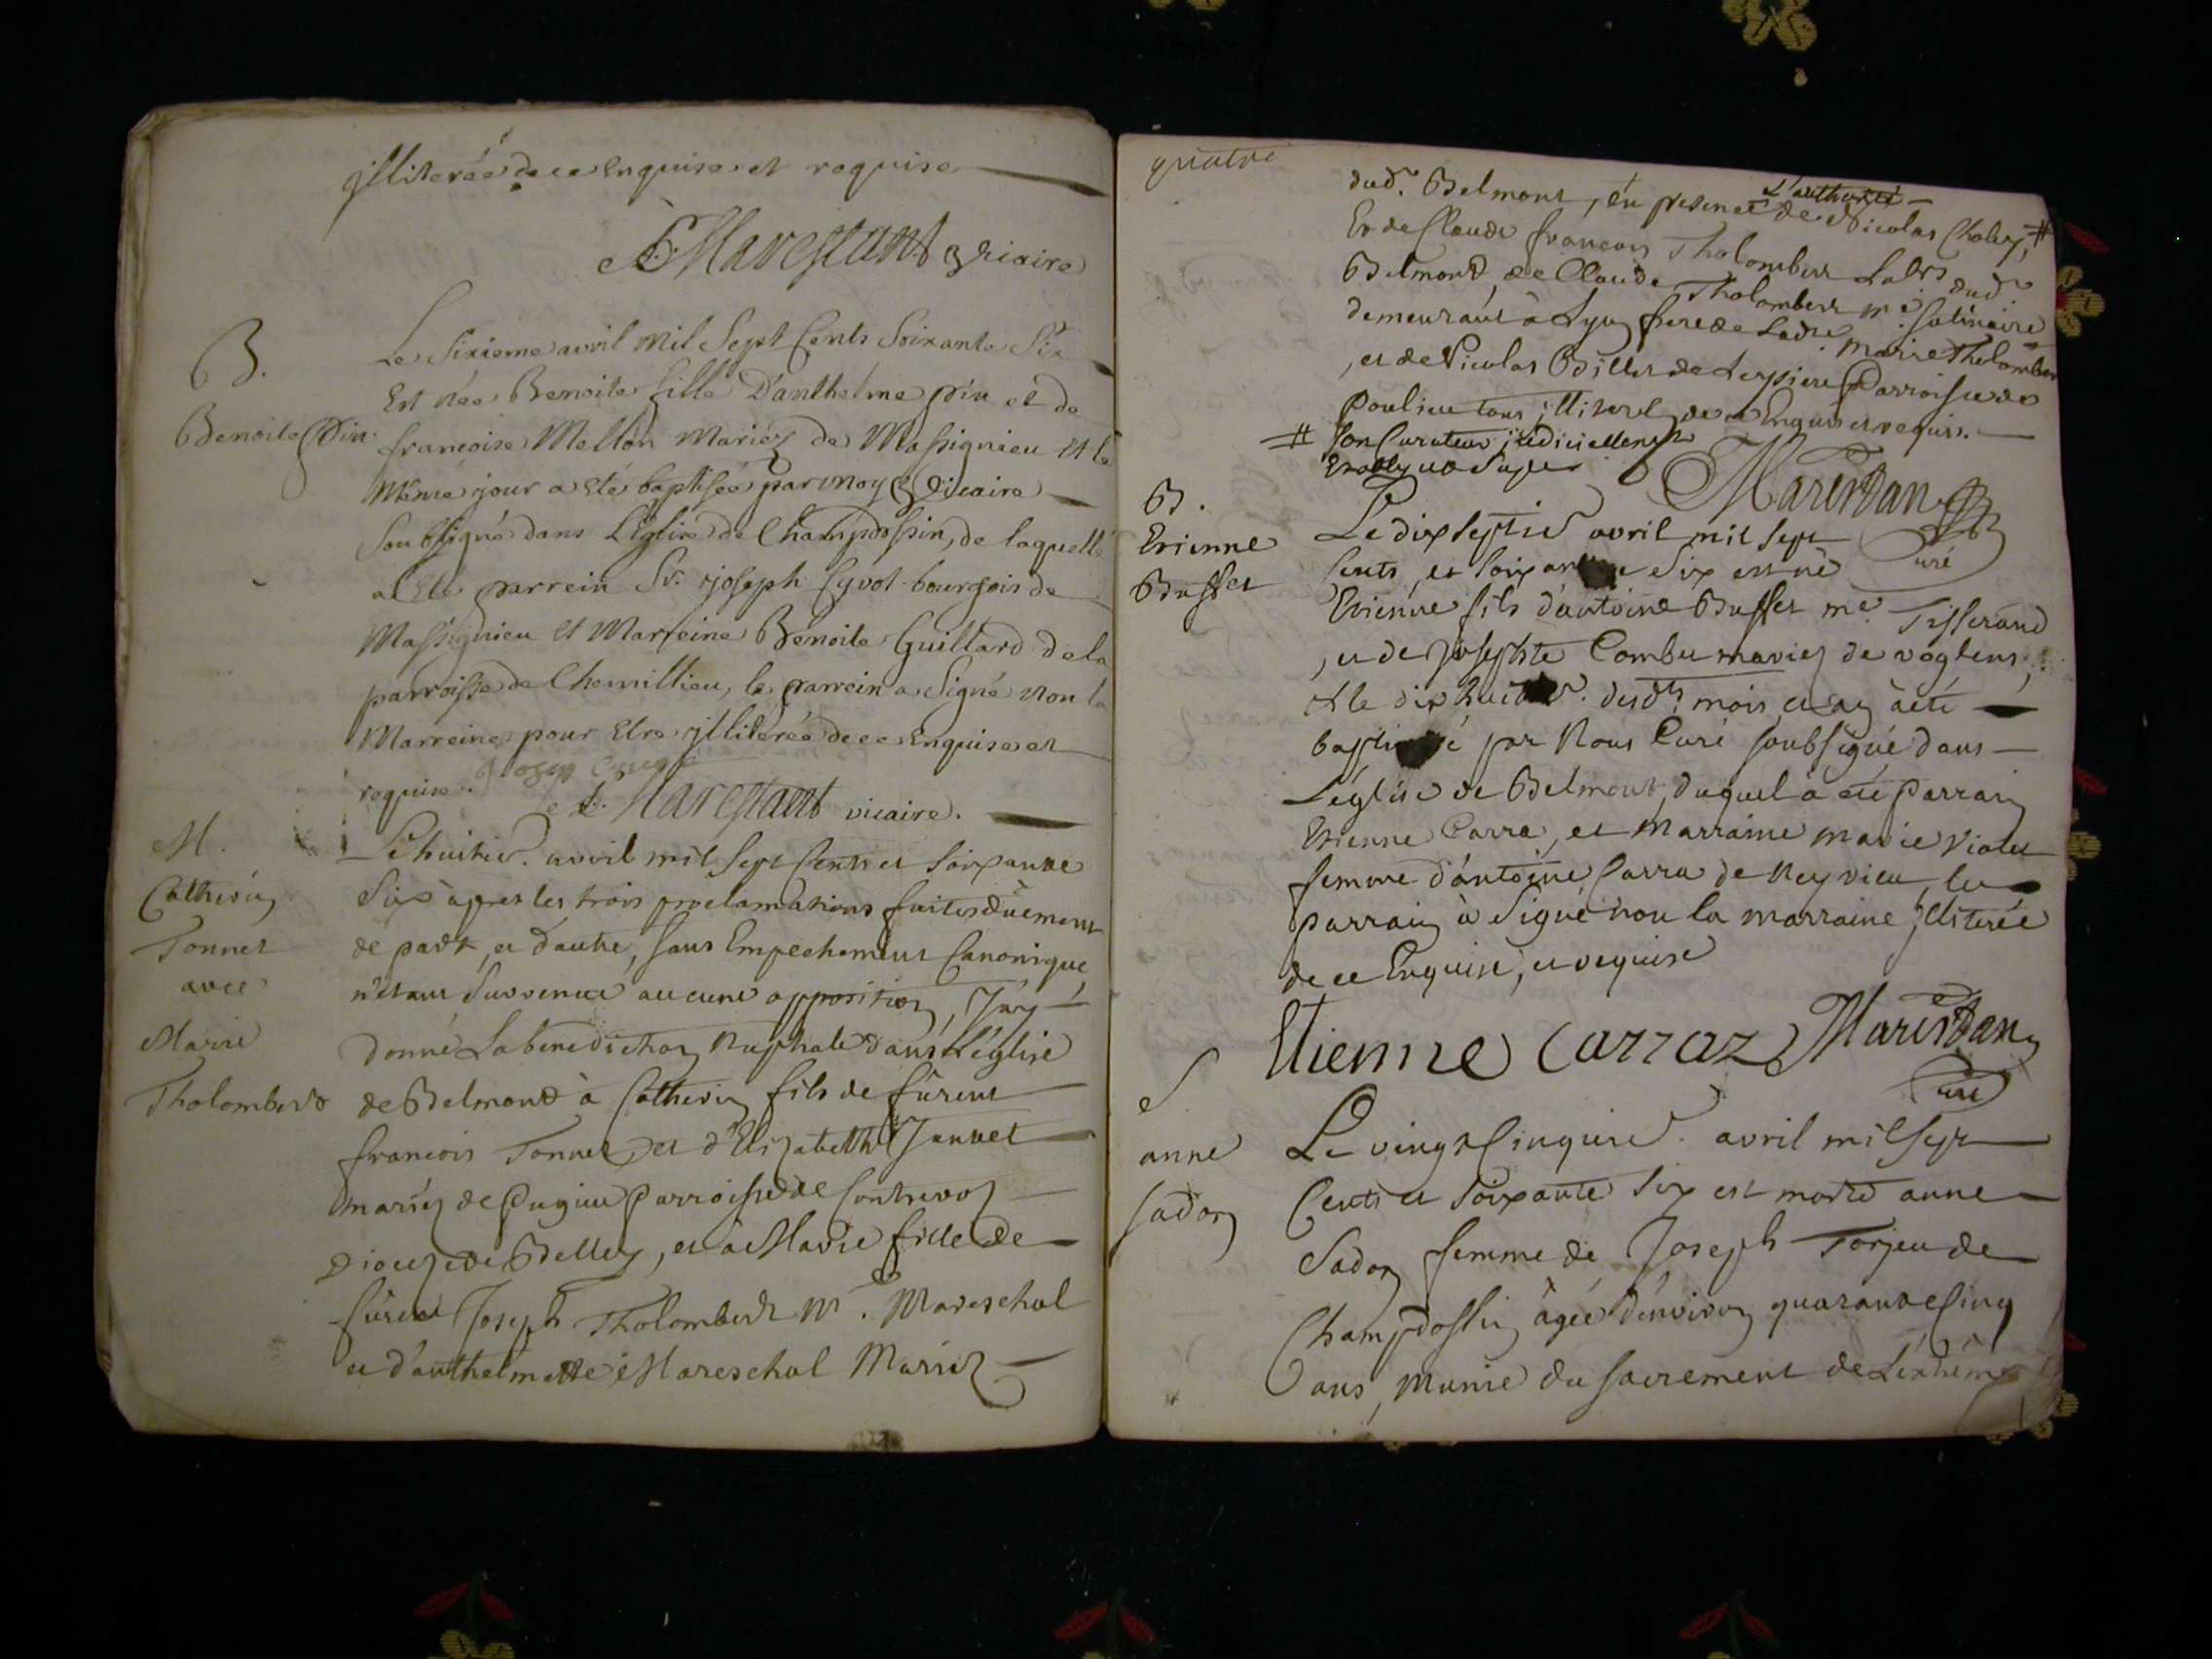 jlliterée de ce Enquise et requise
Marestant vicaire
B.
Benoite Pin
Le Sixieme avril Mil Sept Cents Soixante Six
Est née Benoite fille D'anthelme pin et de
francoise Mellon Mariéz de Massignieu Et le
Même jour a Eté baptisée par moy Vicaire
Soubsigné dans L'Eglise de Champdossin, de laquelle
a Eté parrein Sr. joseph Cyvot bourgois de
Massignieu Et Marreine Benoite Guillard de la
parroisse de Chemillieu, le parrein a Signé non la
Marreine pour Etre jlliterée de ce Enquise et
requise.
Marestant vicaire.
M.
Catherin
Tonnet
avec
Marie
Tholombert
Le huitie. avril mil sept Cents et soixante
Six àpres les trois proclamations faites düement
de part, et d'autre, sans Empechement Canonique,
n'etant survenue aucune opposition, J'ay
donné La benediction Nuptiale dans L'église
de Belmond à Catherin fils de fûrent
francois Tonnet, et d'Elizabeth Janvet
mariéz de Pugieu Parroisse de Contrevoz
Dioceze de Belley, et à Marie fille de
fürent Joseph Tholombert Me. Mareschal
et d'anthelmette Mareschal Mariez
quatre
dud. Belmont, en presence de L'authorité de Nicolas Choley, #
Et de Claude francois Tholombert Labrs dud
Belmond, de Claude Tholombert me. Satinaire
demeurant à Lyon frere de Ladte. Marie Tholombert
, et de Nicolas Billet de Leyssieu Parroisse de
Poulieu tous jlliterés de ce Enquis et requis.
# son Curateur judiciellement
Marestan
Curé
B.
Etienne
Buffet
Le dix septie avril mil sept
Cents, et soixante Six est né
Etienne fils d'antoine Buffet me. Tisserand
, et de Josephte Combet mariez de voglens,
et le dix huitie. desdts mois, et an à été
baptisé par Nous Curé soubsigné dans
L'église de Belmont, duquel à été Parrain
Etienne Carra, et Marraine Marie Violet
femme d'antoine Carra de Neyrieu, le
parrain à Signé non la marraine jlliterée
de ce Enquise, et requise
Etienne Carraz Marestan
Curé
S
anne
Sadon
Le vingt Cinquie. avril mil sept
Cents et soixante six est morte anne
Sadon femme de Joseph Torjeu de
Champdossin âgée d'environ quarante Cinq
ans, munie du sacrement de L'extrême